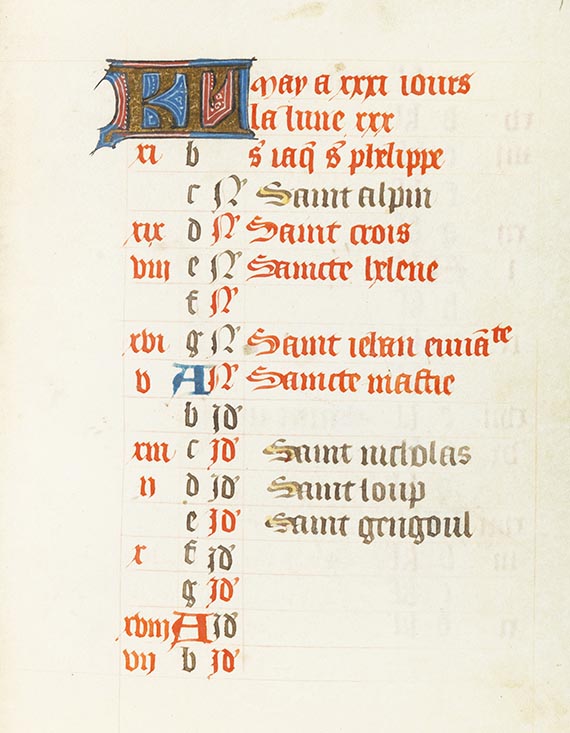 KL May a xxxi iours
la lune xxx
xi b s̄ iaq̄ s̄ phelippe
c N̾ Saint alpin
xix d N̾ Saint crois
viii e N̾ Sancte helene
f N̾
xvi g N̾ Saint iehan
v A N̾ Sancte mastie
b Jd̾
xiii c Jd̾ Saint nicholas
ii d Jd̾ Saint loup
e Jd̾ Saint gengoul
x f Jd̾
g Jd̾
xviii A Jd̾
vii b Jd̾